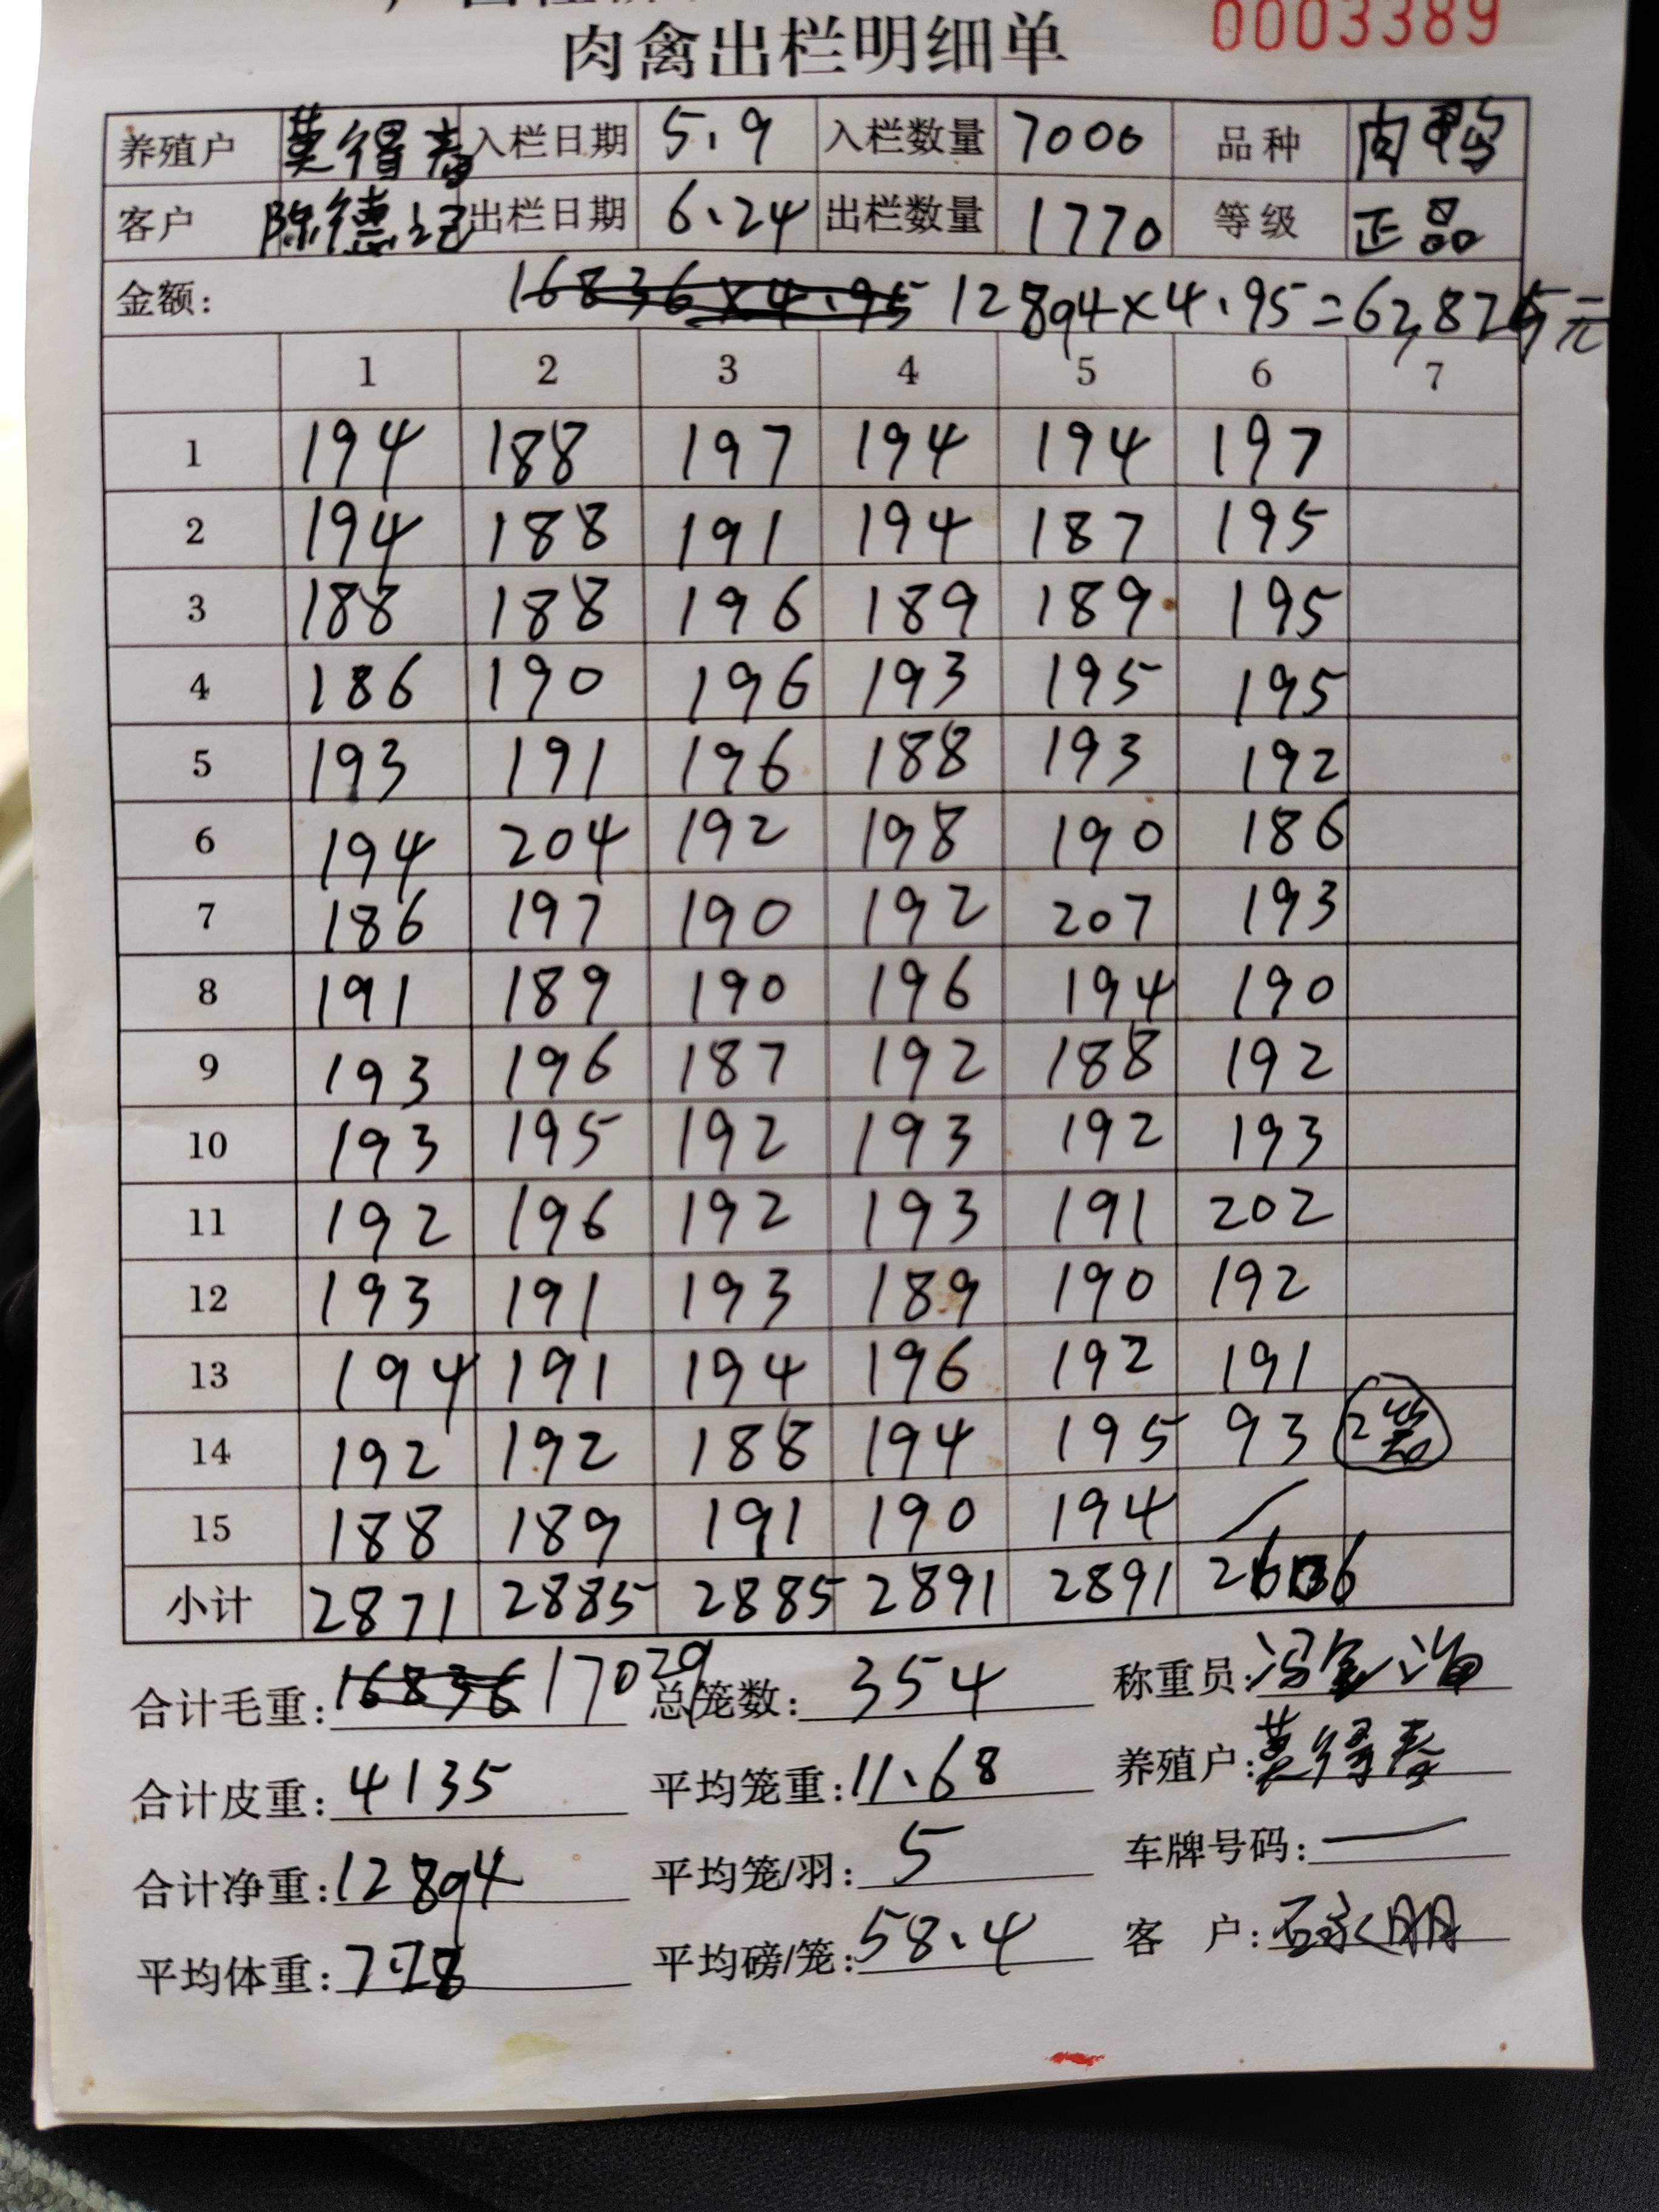 0003389
肉禽出栏明细单
养殖户 莫得春 入栏日期 5.9 入栏数量 7000 品种 肉鸭
客户 陈德记 出栏日期 6.24 出栏数量 1770 等级 正品
金额: 16836×4.95 12894×4.95=63,825元
1 2 3 4 5 6 7
1 194 188 197 194 194 197
2 194 188 191 194 187 195
3 188 188 196 189 189 195
4 186 190 196 193 195 195
5 193 191 196 188 193 192
6 194 204 192 198 190 186
7 186 197 190 192 207 193
8 191 189 190 196 194 190
9 193 196 187 192 188 192
10 193 195 192 193 192 193
11 192 196 192 193 191 202
12 193 191 193 189 190 192
13 194 191 194 196 192 191
14 192 192 188 194 195 93 2笼
15 188 189 191 190 194 /
小计 2871 2885 2885 2891 2891 2606
合计毛重: 16836 17029 总笼数: 354 称重员:
合计皮重: 4135 平均笼重: 11.68 养殖户: 莫得春
合计净重: 12894 平均笼/羽: 5 车牌号码: —
平均体重: 7.28 平均磅/笼: 58.4 客户: 石永朋